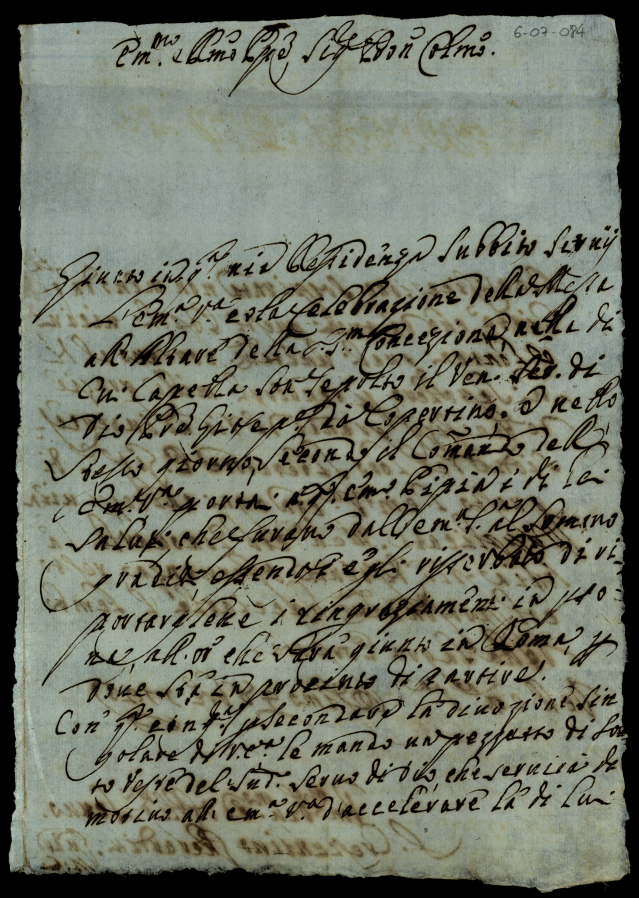 6-07-084
Em.mo e R.mo Pre, Sig.re e Pron Colmo.
Giunto in q.a mia Residenza subbito servij
l'em.a v.a colla celebrazione della Messa
all'Altare della S.ma Concezione nella di
cui Capella son sepolto il Ven. Ser. di
Dio Pre Giusep.e da Copertino, e nello
stesso giorno, secondo il Comando dell'
Em.a v.a portai all'em.o Pipia i di lei
saluti che furono dall'em.a S.a al sommo
graditi, essendosi egli riserbato di ri
portargliene i ringraziamenti in perso-
na, all'or che sarà giunto in Roma, p
dove sta in procinto di partire.
Con q.a cong.a p secondare la divozione sin
golare di v.ra em.a le mando un pezzetto di
to Veste del sud.o Servo di Dio, che servirà di
motivo all'em.a v.a d'accelerare la di lui